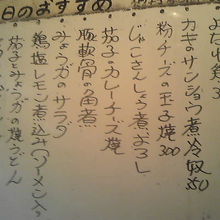 日のおすすめ
カキのサンショウ煮冷奴350
粉チーズの玉子焼300
じゃこさんしょう煮おろし
茄子のカレーチーズ焼
豚軟骨の角煮
みょうがのサラダ
鶏塩レモン煮込み(ラーメン入)
茄子とみょうがの焼うどん